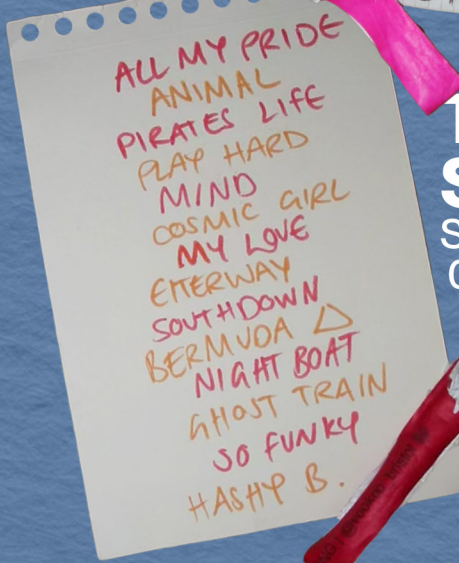 ALL MY PRIDE
ANIMAL
PIRATES LIFE
PLAY HARD
MIND
COSMIC GIRL
MY LOVE
EITERWAY
SOUTHDOWN
BERMUDA △
NIGHT BOAT
GHOST TRAIN
SO FUNKY
HASHY B.